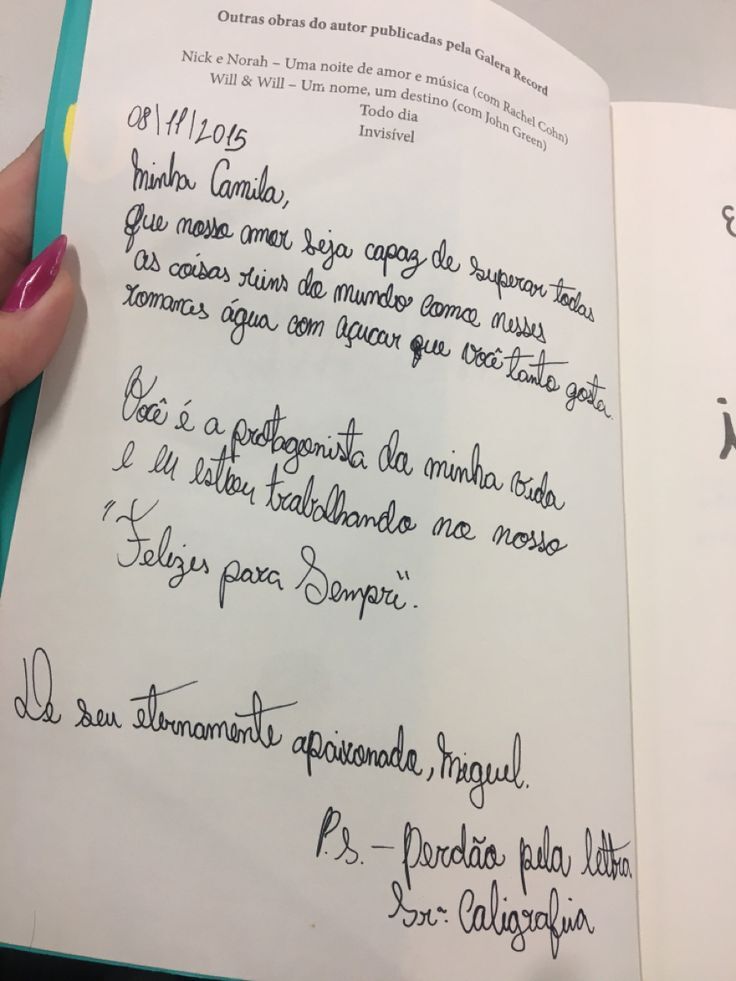 Outras obras do autor publicadas pela Galera Record
Nick e Norah – Uma noite de amor e música (com Rachel Cohn)
Will & Will – Um nome, um destino (com John Green)
Todo dia
Invisível
08/11/2015
Minha Camila,
que nosso amor seja capaz de superar todas
as coisas ruins do mundo como nesses
romances água com açucar que você tanto gosta.
Você é a protagonista da minha vida
e eu estou trabalhando no nosso
"Felizes para Sempre".
De seu eternamente apaixonado, Miguel.
P.S. – Perdão pela letra
Srª. Caligrafia